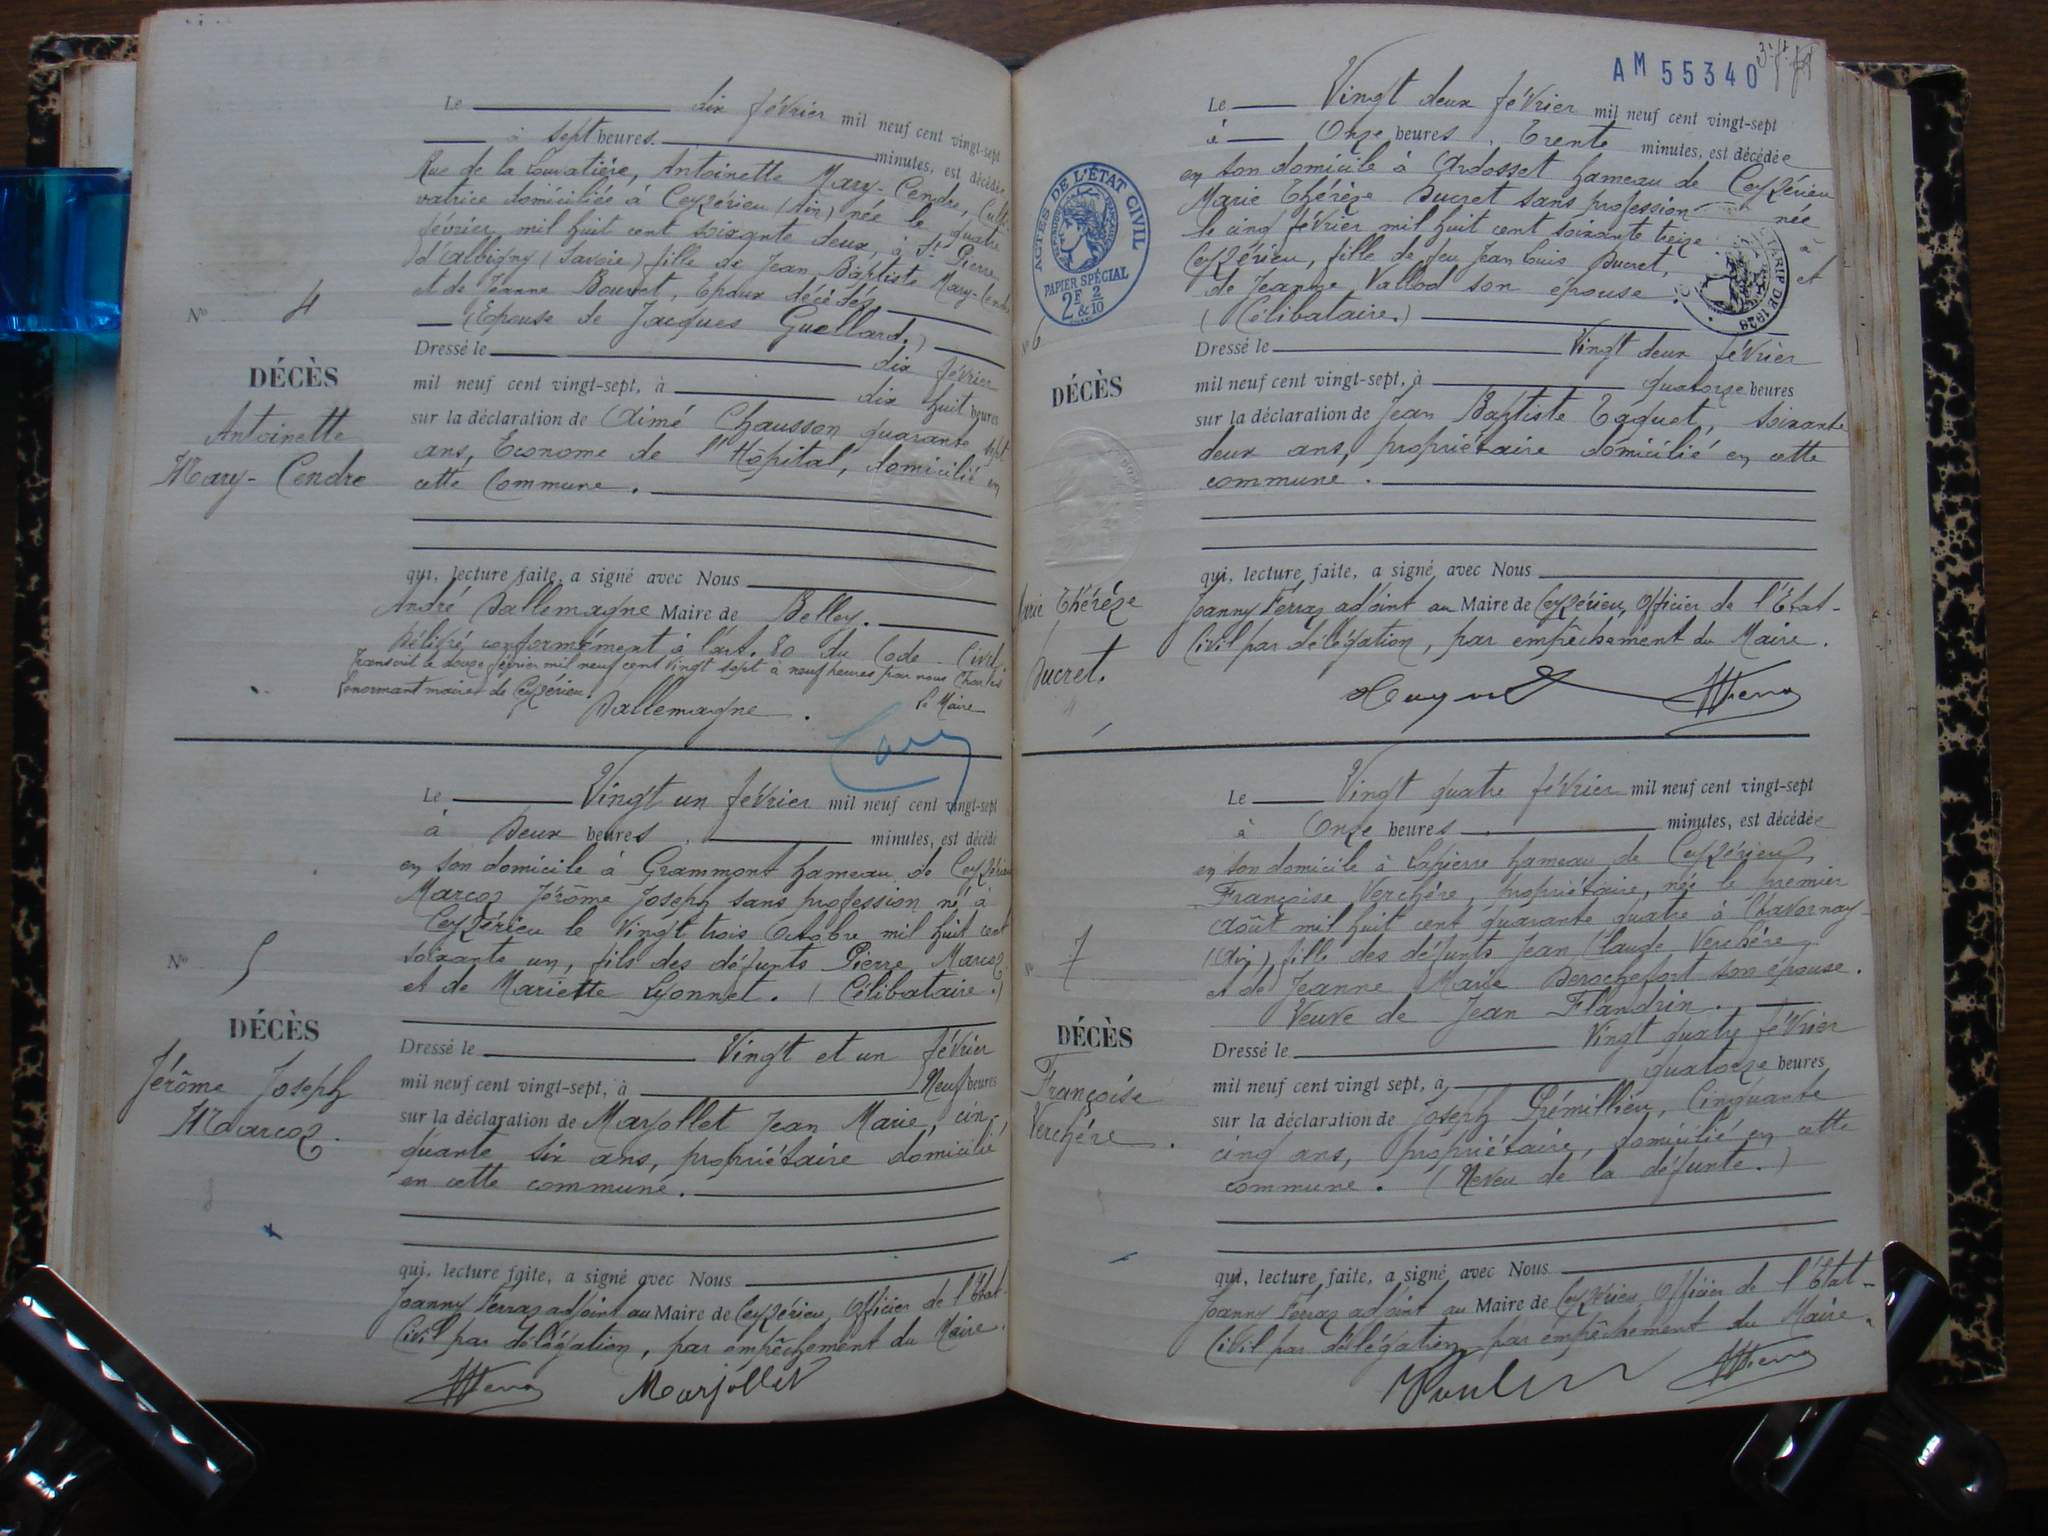 Le dix février mil neuf cent vingt-sept
à sept heures. minutes, est décédée
Rue de la Louvatière, Antoinette Mary-Cendre, Culti-
vatrice domiciliée à Ceyzérieu (Ain) née le quatre
février mil huit cent soixante deux, à St Pierre
d'Albigny (Savoie) fille de Jean Baptiste Mary-Cendre
et de Jeanne Bouvet, époux décédés
(Epouse de Jacques Guellard.)
No 4
DÉCÈS
Antoinette
Mary-Cendre
Dressé le dix février
mil neuf cent vingt-sept, à dix huit heures
sur la déclaration de Aimé Chausson quarante sept
ans, Econome de l'Hôpital, domicilié en
cette Commune.
qui, lecture faite, a signé avec Nous
André Dallemagne Maire de Belley.
Délivré conformément à l'art. 80 du Code Civil.
Transcrit le douze février mil neuf cent vingt sept à neuf heures par nous Charles
Lenormant maire de Ceyzérieu.
Le Maire
Dallemagne.
Le Vingt un février mil neuf cent vingt-sept
à Deux heures. minutes, est décédé
en son domicile à Grammont hameau de Ceyzérieu
Marcoz Jérôme Joseph sans profession né à
Ceyzérieu le Vingt trois Octobre mil huit cent
soixante un, fils des défunts Pierre Marcoz
et de Mariette Lyonnet. (Célibataire.)
No 5
DÉCÈS
Jérôme Joseph
Marcoz.
Dressé le Vingt et un février
mil neuf cent vingt-sept, à Neuf heures
sur la déclaration de Marjollet Jean Marie, cin-
quante six ans, propriétaire domicilié
en cette commune.
qui, lecture faite, a signé avec Nous
Joanny Ferraz adjoint au Maire de Ceyzérieu, Officier de l'Etat-
Civil par délégation, par empêchement du Maire.
Marjollet
AM 55340
Le Vingt deux février mil neuf cent vingt-sept
à Onze heures. Trente minutes, est décédée
en son domicile à Ardosset hameau de Ceyzérieu
Marie Thérèze Ducret sans profession née
le cinq février mil huit cent soixante treize à
Ceyzérieu, fille de feu Jean Louis Ducret, et
de Jeanne Vallod son épouse
(Célibataire.)
ACTES DE L'ÉTAT CIVIL
PAPIER SPÉCIAL
2F & 2/10
TARIF DE 1926
No 6
DÉCÈS
Marie Thérèze
Ducret.
Dressé le Vingt deux février
mil neuf cent vingt-sept, à quatorze heures
sur la déclaration de Jean Baptiste Taquet, soixante
deux ans, propriétaire domicilié en cette
commune.
qui, lecture faite, a signé avec Nous
Joanny Ferraz adjoint au Maire de Ceyzérieu, Officier de l'Etat-
Civil par délégation, par empêchement du Maire.
Le Vingt quatre février mil neuf cent vingt-sept
à Onze heures minutes, est décédée
en son domicile à Lapierre hameau de Ceyzérieu,
Françoise Verchère, propriétaire, née le premier
Août mil huit cent quarante quatre à Chavornay
(Ain) fille des défunts Jean Claude Verchère
et de Jeanne Marie Derochefort son épouse.
Veuve de Jean Flandrin.
No 7
DÉCÈS
Françoise
Verchère.
Dressé le Vingt quatre février
mil neuf cent vingt sept, à quatorze heures
sur la déclaration de Joseph Prémillieu, Cinquante
cinq ans, propriétaire, domicilié en cette
commune. (Neveu de la défunte.)
qui, lecture faite, a signé avec Nous
Joanny Ferraz adjoint au Maire de Ceyzérieu, Officier de l'Etat-
Civil par délégation, par empêchement du Maire.